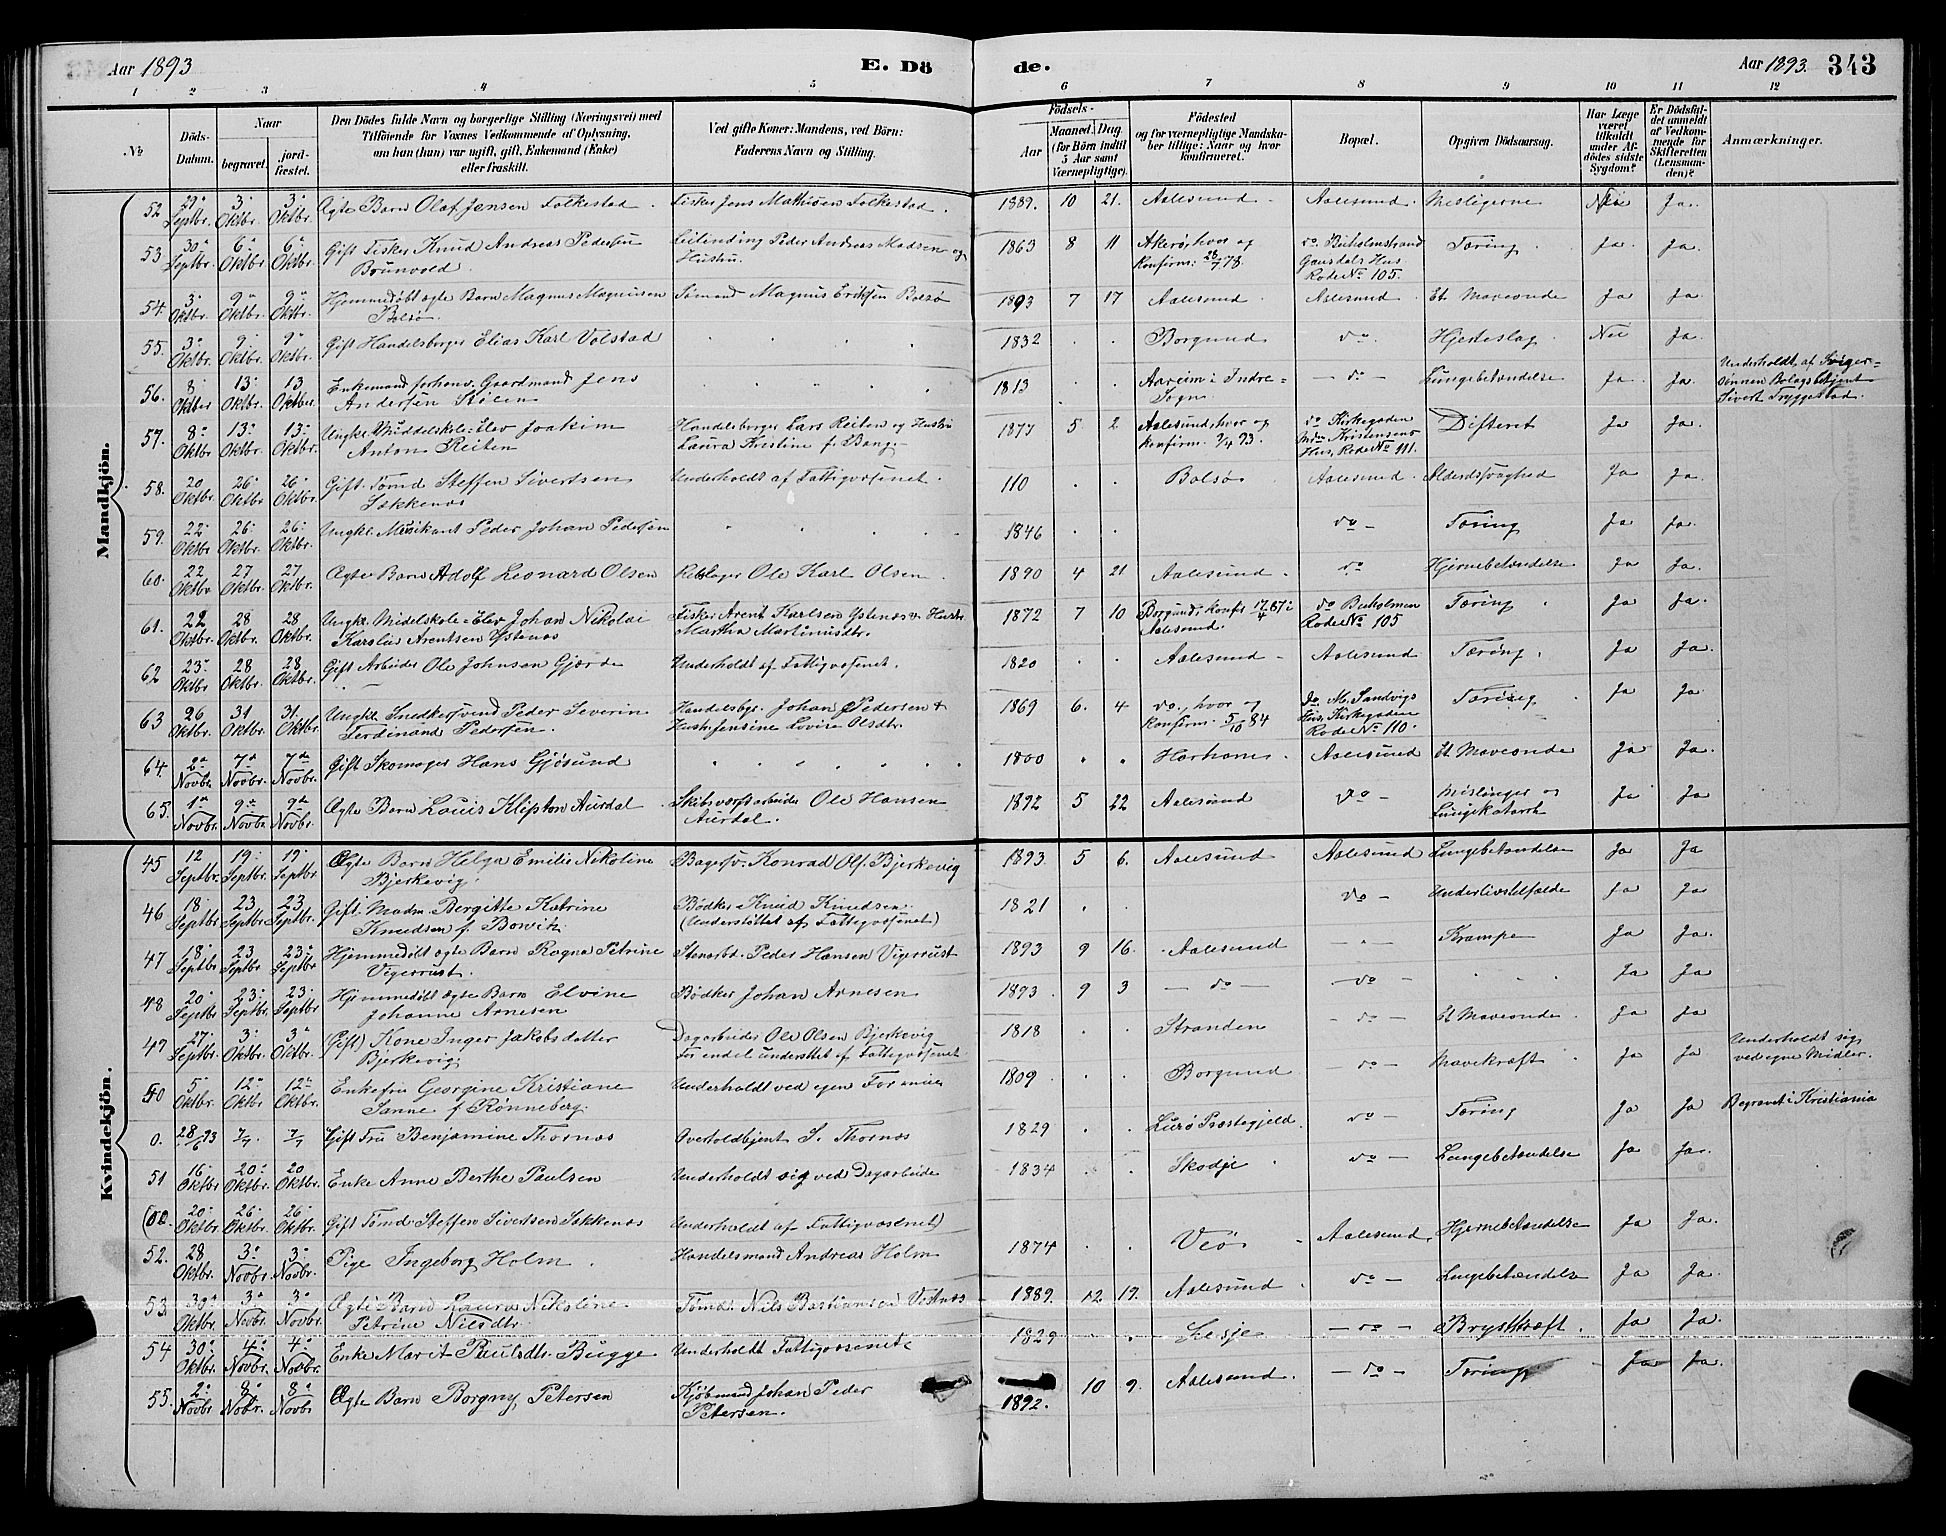 Aar 1893
E. Dö
de.
Aar 1893.
343
1 2 3 4 5 6 7 8 9 10 11 12
No
Döds-Datum.
Naar
begravet.
jordfæstet.
Den Dödes fulde Navn og borgerlige Stilling (Næringsvei) med
Tilföiende for Voxnes Vedkommende af Oplysning,
om han (hun) var ugift, gift, Enkemand (Enke)
eller fraskilt.
Ved gifte Koner: Mandens, ved Börn:
Faderens Navn og Stilling.
Födsels-
Aar
Maaned.
Dag.
(for Börn indtil
5 Aar samt
Værnepligtige).
Födested
og for værnepligtige Mandska-
ber tillige: Naar og hvor
konfirmeret.
Bopæl.
Opgiven Dödsaarsag.
Har Læge
været
tilkaldt
under Af-
dödes sidste
Sygdom?
Er Dödsfal-
det anmeldt
af Vedkom-
mende for
Skifteretten
(Lensman-
den)?
Anmærkninger.
Mandkjön.
52 29 Septbr. 3 Oktbr. 3 Oktbr. Ægte Barn Olaf Jensen Falkestad. Fisker Jens Mathisen Falkestad. 1889. 10 21. Aalesund Aalesund. Meslingerne Nei Ja.
53. 30 Septbr. 6 Oktbr. 6 Oktbr. Gift Fisker Knud Andreas Pedersen
Brunvold. Leilending Peder Andreas Madsen og
Hustru. 1863 8 11 Akerö, hvor og
konfirm: 28/7 78. do Buholmstrand
Gausdals Hus
Rode No 105. Tæring. Ja. Ja.
54. 3 Oktbr. 9 Oktbr. 9 Oktbr. Hjemmedöbt ægte Barn Magnus Magnusen
Bolsö. Tömand Magnus Eriksen Bolsö 1893 7 17 Aalesund Aalesund Et Maveonde Ja Ja.
55. 3 Oktbr. 9 Oktbr. 9 Oktbr. Gift Handelsborger Elias Karl Volstad 1832 Borgund do Hjerteslag. Nei Ja.
56. 8 Oktber 13 Oktbr. 13 Oktber Enkemand forhenv. Gaardmand Jens
Andersen Stölen 1813 Aareim i Indre-
Sogn. do Lungebetændelse Ja. Ja. Underholdt af Sviger-
sönnen Bolagsbetjent
Sivert Tryggestad.
57. 8 Oktbr 13 Oktbr. 13 Oktbr. Ungkl. Middelskole-Elev Joakim
Anton Reiten Handelsborger Lars Reiten og Hustru
Laura Kristine f. Bang 1877 5 2 Aalesund, hvor og
konfirm. 2/4 93. do Kirkegaden
Mdm Kristensens
Hus, Rode No 111. Difteret Ja Ja
58. 20 Oktbr. 26 Oktbr. 26 Oktbr. Gift Tömd Steffen Sivertsen
Sekkenæs Underholdt af Fattigvæsenet. 110 Bolsö Aalesund. Alderdsvaghed Ja Ja.
59. 22 Oktbr 26 Oktbr. 26 Oktbr. Ungkl. Musikant Peder Johan Pedersen 1846 do Tæring Ja Ja.
60. 22 Oktbr 27 Oktbr. 27 Oktbr. Ægte Barn Adolf Leonard Olsen Rebslager Ole Karl Olsen. 1890 4 21 Aalesund. do Hjernebetændelse Ja Ja.
61. 22 Oktbr. 28 Oktbr. 28 Oktbr. Ungkl. Midelskole-Elev Johan Nikolai
Karslus Arentsen Ystenæs Fisker Arent Karlsen Ystenæs & Hustr.
Martha Martinusdtr. 1872 7 10 Borgund, konfr 17/4 87 i
Aalesund. do Buholmen
Rode No 105 Tæring Ja Ja
62 23 Oktbr 28 Oktbr. 28 Oktbr. Gift Arbeider Ole Johnsen Gjærde Underholdt af Fattigvæsenet. 1820 Aalesund Aalesund Tæring. Ja Ja.
63 26 Oktbr. 31 Oktbr. 31. Oktbr Ungkl. Snedkersvend Peder Severin
Ferdinand Pedersen. Handelsbgr. Johan Pedersen &
Hustr. Jensine Lovise Olsdtr. 1869 6. 4 do., hvor og
konfirm. 5/10 84 do M. Sandvigs
Hus, Kirkegaden
Rode No 110. Tæring Ja Ja
64. 2 Novbr. 7 Novbr. 7de Novbr. Gift Skomager Hans Gjösund 1800 Harham Aalesund Et Maveonde Ja Ja.
65. 1 Novbr. 9 Novbr 9de Novbr. Ægte Barn Louis Klipton Aurdal Skibsværftsarbeider Ole Hansen
Aurdal. 1892 5 22 Aalesund do Meslinger og
Lungekatarrh Ja Ja
Kvindekjön.
45 12 Septbr. 19 Septbr. 19 Septbr. Ægte Barn Helga Emilie Nikoline
Bjerkevig. Bagersv. Konrad Ol. Bjerkevig 1893. 5 6. Aalesund Aalesund Lungebetændelse Ja Ja
46 18 Septbr. 23 Septbr 23 Septbr. Gift Madm Bergitte Katrine
Knudsen f. Bowitz. Bödker Knud Knudsen.
(Understöttet af Fattigvæsenet) 1821 do Underlivstilfælde Ja Ja
47 18 Septbr 23 Septbr 23 Septbr Hjemmedöbt ægte Barn Ragna Petrine
Vigerrust. Stenarbd. Peder Hansen Vigerrust 1893 9 16. Aalesund Krampe Ja Ja.
48 20 Septbr 23 Septbr 23 Septbr Hjemmedöbt ægte Barn Elvine
Johanne Arnesen Bödker Johan Arnesen 1893. 9 3 do do Ja Ja
49 27 Septbr. 3 Oktbr. 3 Oktbr. (Gift) Kone Inger Jakobsdatter
Bjerkevig Dagarbeider Ole Olsen Bjerkevig
For endel understtet af Fattigvæsenet 1818 Stranden do Et Maveonde Ja Ja
50 5 Oktbr. 12 Oktbr. 12 Oktbr. Enkefru Georgine Kristiane
Sanne f. Rönneberg. Underholdt ved egen Formue 1809 Borgund do Mavekræft Ja Ja Underholdt sig
ved egne Midler.
0. 28/6 93 7/7. 7/7 Gift Fru Benjamine Thornæs Overtoldbtjent S. Thornæs 1829 Lurö Præstegjeld. do Tæring Ja Ja Begravet i Kristiania
51 16 Oktbr 20 Oktbr. 20 Oktbr. Enke Anne Berthe Paulsen Underholdt sig ved Dagarbeide 1834 Skodje do Lungebetændelse Ja Ja.
(00. 20 Oktbr. 26 Oktbr. 26 Oktbr. Gift Tömd Steffen Sivertsen Sekkenæs Underholdt af Fattigvæsenet)
52. 28 Oktbr. 3 Novbr. 3 Novbr. Pige Ingeborg Holm. Handelsmand Andreas Holm 1874 Veö Aalesund. Hjernebetændelse Ja Ja.
53 30 Oktbr. 3 Novbr. 3 Novbr. Ægte Barn Laura Nikoline
Petrine Nilsdtr. Tömd. Nils Bastiansen Vestnæs 1889. 12 19. Aalesund do Lungebetændelse Ja Ja.
54 30 Oktbr. 4 Novbr. 4 Novbr. Enke Marit Paulsdtr. Bugge Underholdt Fattigvæsenet 1829 Lesje do Brystkræft. Ja Ja.
55. 2 Novbr. 8 Novbr. 8 Novbr Ægte Barn Borgny Petersen Kjöbmand Johan Peder
Petersen. 1892. 10 9. Aalesund. do Tæring Ja Ja.